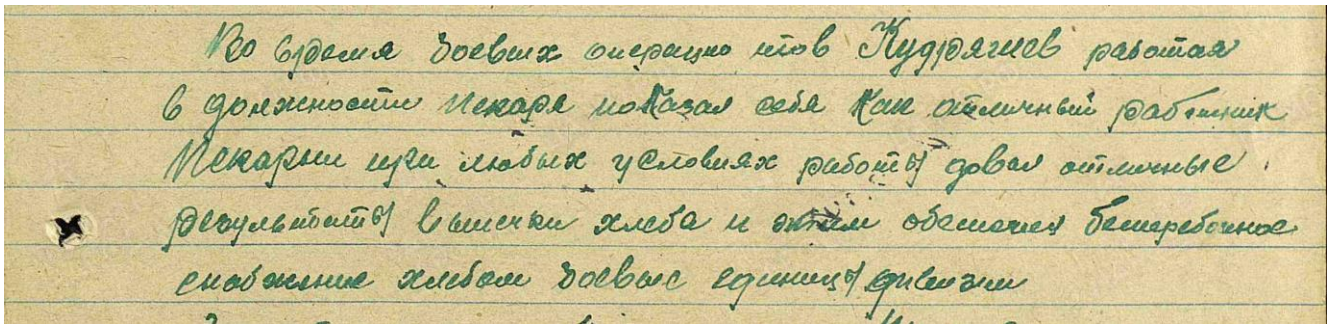 Во время боевых операцио тов Кудрягиев работая
в должности Пекаря показал себя как отличный работник
Пекарни при любых условиях работы довал отличные
результаты выпечки хлеба и этим обеспечил бесперебойное
снабжение хлебом боевые единицы дивизии